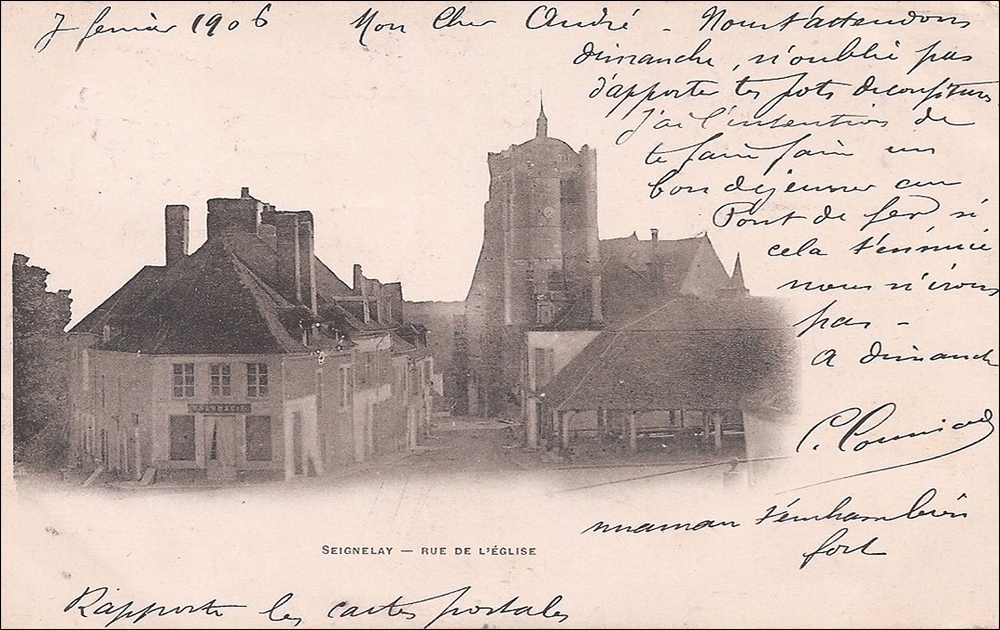 7 janvier 1906 Mon Cher André - Nous t'attendons
dimanche, n'oublie pas
d'apporter tes pots de confitures
j'ai l'intention de
te faire faire un
bon dejeuner au
Pont de fer si
cela t'ennuie
nous n'irons
pas -
A dimanche
maman t'embrasse bien
fort
PHARMACIE
SEIGNELAY — RUE DE L'ÉGLISE
Rapporte les cartes postales